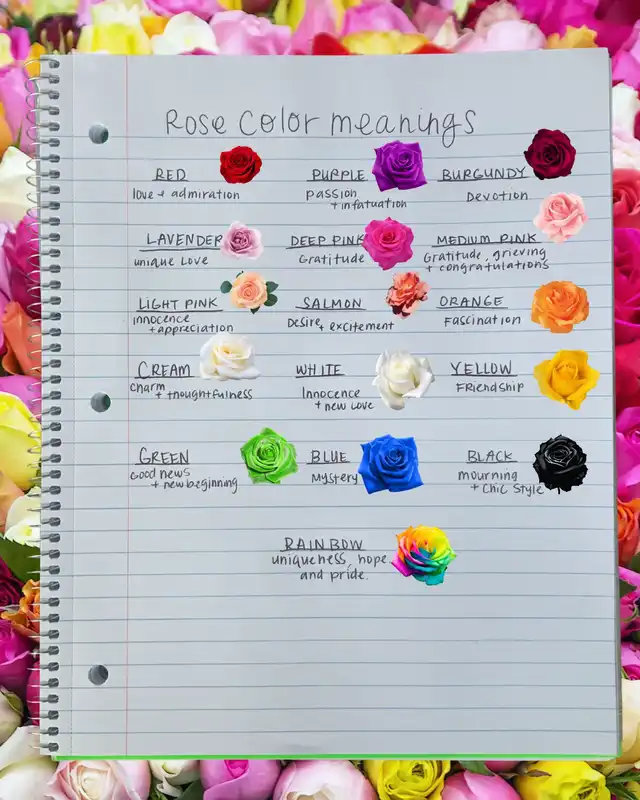 Rose Color meanings
RED
love + admiration
PURPLE
passion
+ infatuation
BURGUNDY
Devotion
LAVENDER
unique Love
DEEP PINK
Gratitude
MEDIUM PINK
Gratitude, grieving
+ congratulations
LIGHT PINK
innocence
+ appreciation
SALMON
Desire + excitement
ORANGE
Fascination
CREAM
charm
+ thoughtfulness
WHITE
Innocence
+ new Love
YELLOW
Friendship
GREEN
Good news
+ new beginning
BLUE
Mystery
BLACK
mourning
+ Chic Style
RAINBOW
uniqueness, hope
and pride.